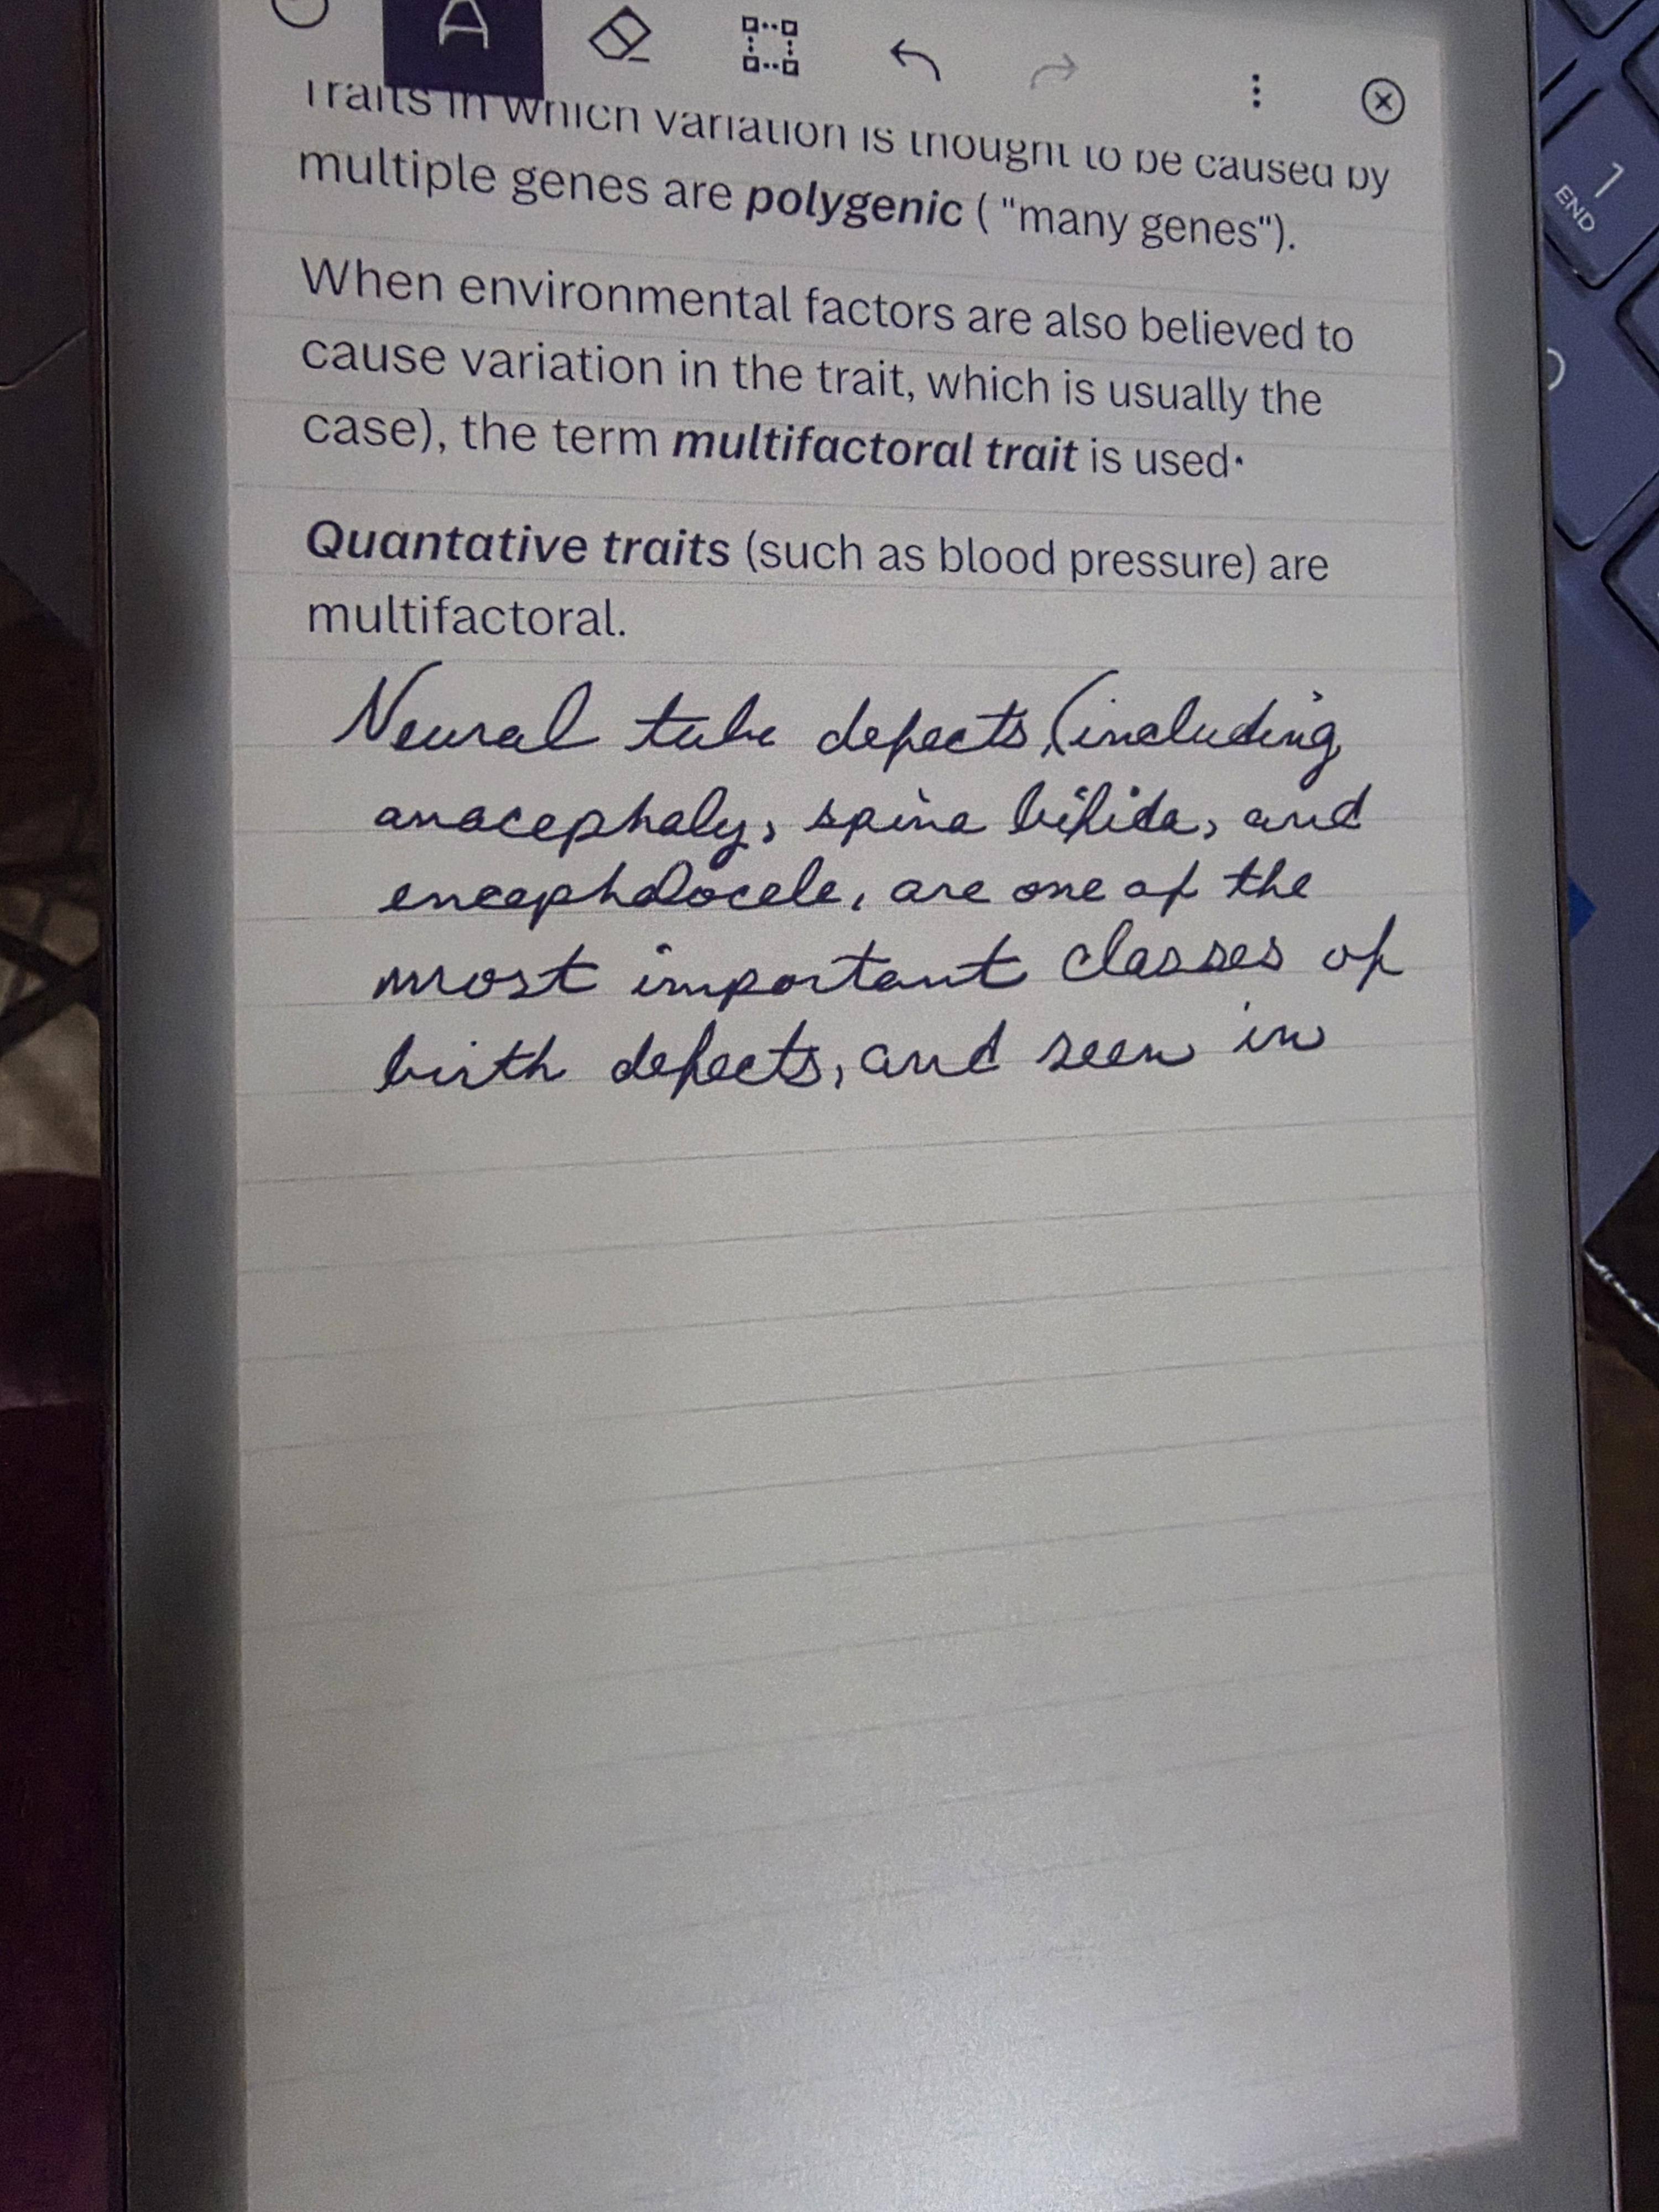 A
Traits in which variation is thought to be caused by
multiple genes are polygenic ( "many genes").
When environmental factors are also believed to
cause variation in the trait, which is usually the
case), the term multifactoral trait is used.
Quantative traits (such as blood pressure) are
multifactoral.
Neural tube defects, (including
anacephaly, spina bifida, and
encephalocele, are one of the
most important classes of
birth defects, and seen in
1
END